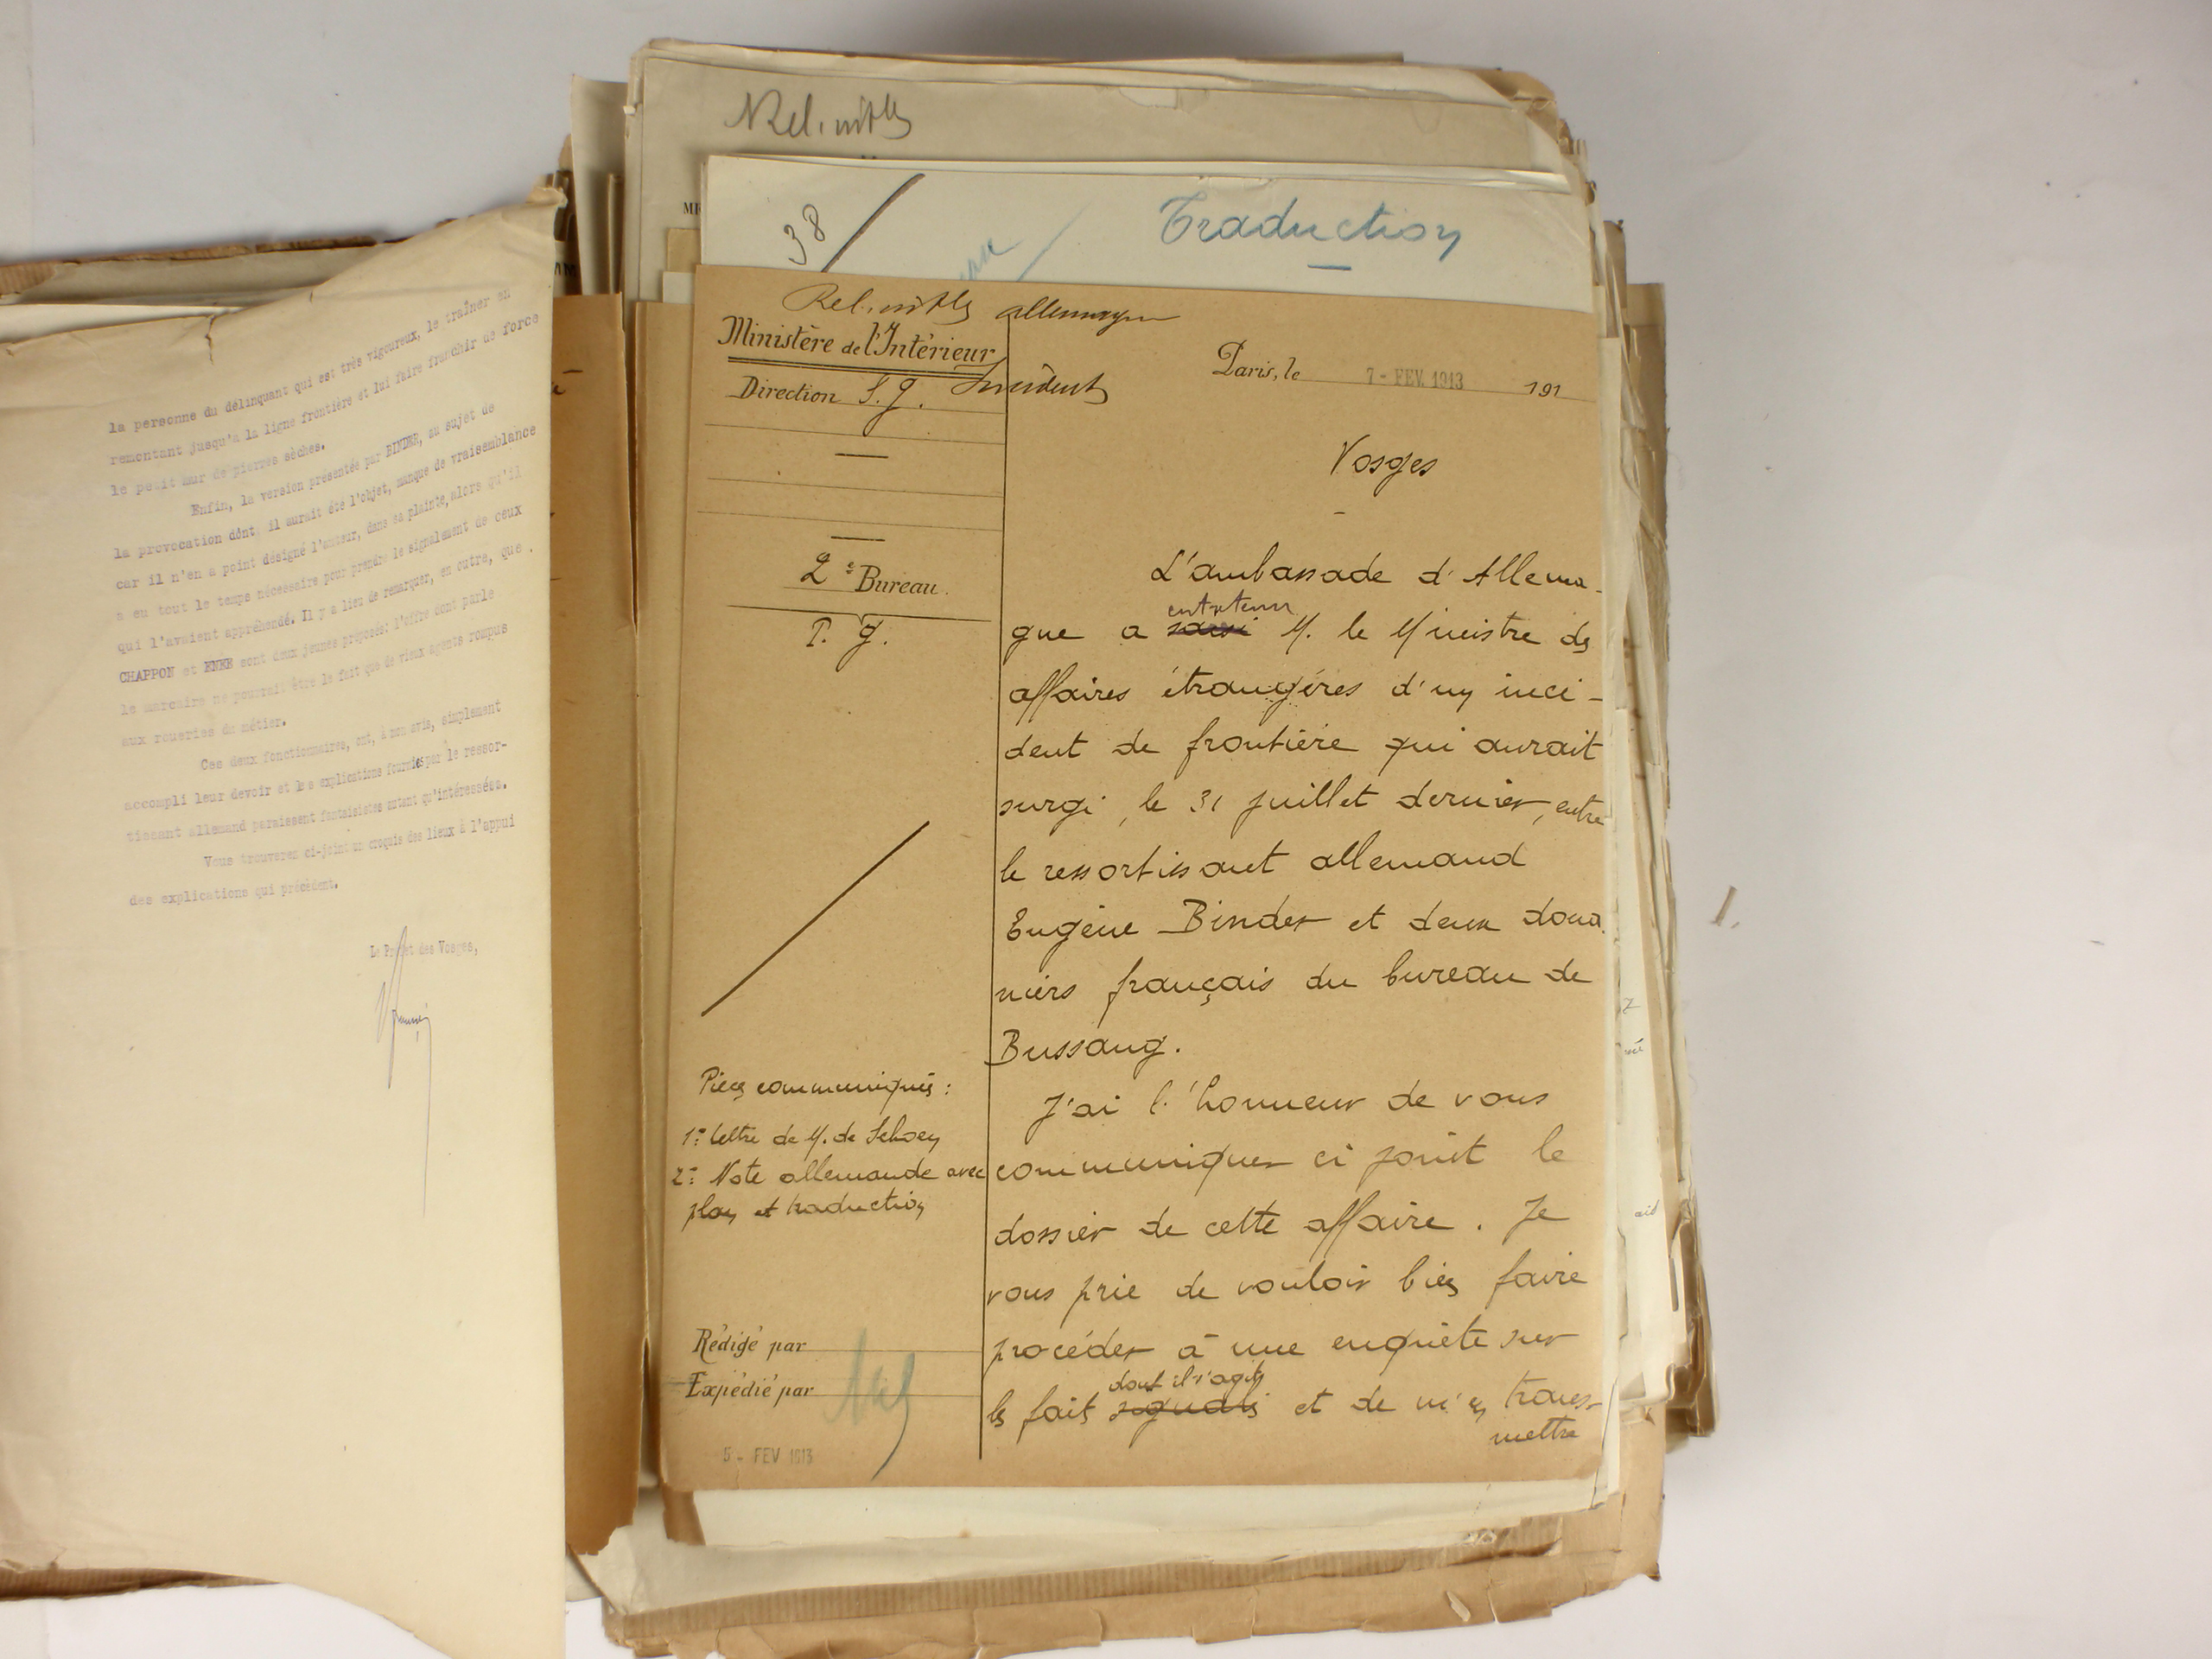 la personne du délinquant qui est très vigoureux, le traîner en
remontant jusqu'à la ligne frontière et lui faire franchir de force
le petit mur de pierres sèches.
Enfin, la version présentée par BINDER, au sujet de
la provocation dont il aurait été l'objet, manque de vraisemblance
car il n'en a point désigné l'auteur, dans sa plainte, alors qu'il
a eu tout le temps nécessaire pour prendre le signalement de ceux
qui l'avaient appréhendé. Il y a lieu de remarquer, en outre, que
CHAPPON et ENKE sont deux jeunes préposés: l'offre dont parle
le marcaire ne pourrait être le fait que de vieux agents rompus
aux roueries du métier.
Ces deux fonctionnaires, ont, à mon avis, simplement
accompli leur devoir et les explications fournies par le ressor-
tissant allemand paraissent fantaisistes autant qu'intéressées.
Vous trouverez ci-joint un croquis des lieux à l'appui
des explications qui précèdent.
Le Préfet des Vosges,
Rel. intles
38
Traduction
Rel. intles allemagne
Ministère de l'Intérieur
Direction S.g. Incidents
2e Bureau.
P. g.
Pièces communiquées :
1° Lettre de M. de Schoen
2° Note allemande avec
plan et traduction
Rédigé par
Expédié par
5 - FEV 1913
Paris, le 7 - FEV. 1913 191
Vosges
L'ambassade d'Allema-
entretenu
gue a saisi M. le Ministre des
affaires étrangères d'un inci-
dent de frontière qui aurait
surgi, le 31 juillet dernier, entre
le ressortissant allemand
Eugène Binder et deux doua-
niers français du bureau de
Bussang.
J'ai l'honneur de vous
communiquer ci joint le
dossier de cette affaire. Je
vous prie de vouloir bien faire
procéder à une enquête sur
dont il s'agit
les faits signalés et de m'en trans-
mettre